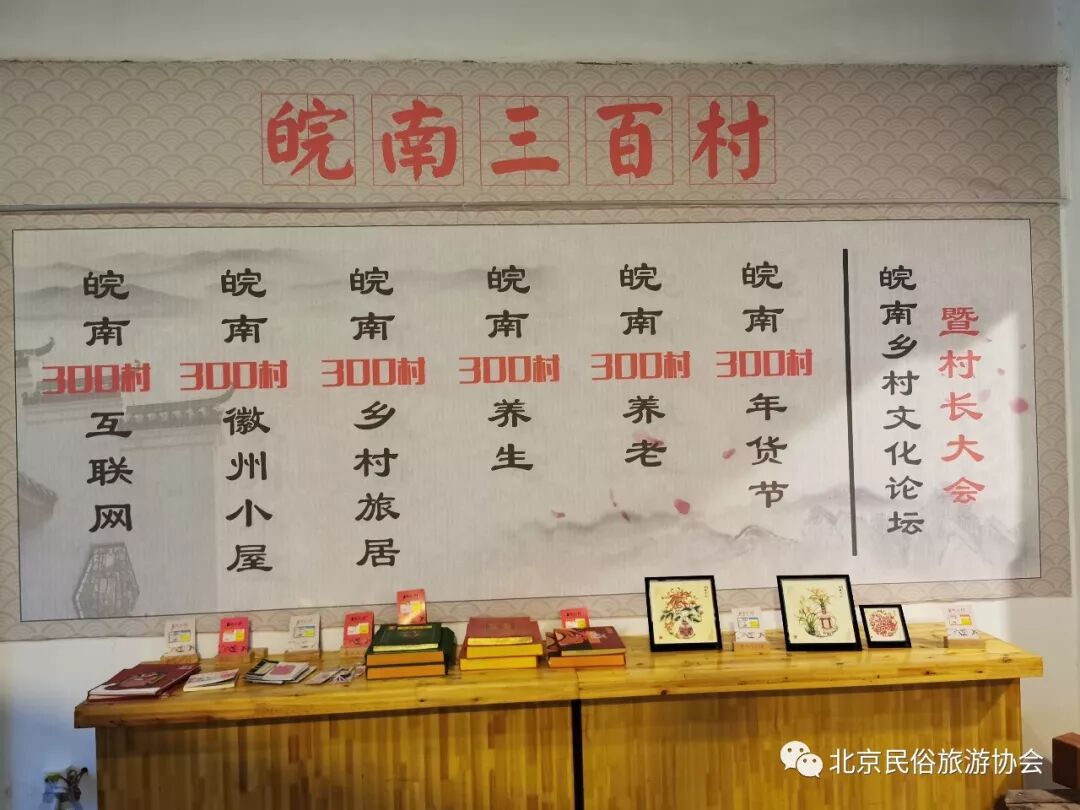 皖南三百村
皖南300村互联网
皖南300村徽州小屋
皖南300村乡村旅居
皖南300村养生
皖南300村养老
皖南300村年货节
皖南乡村文化论坛
暨村长大会
北京民俗旅游协会